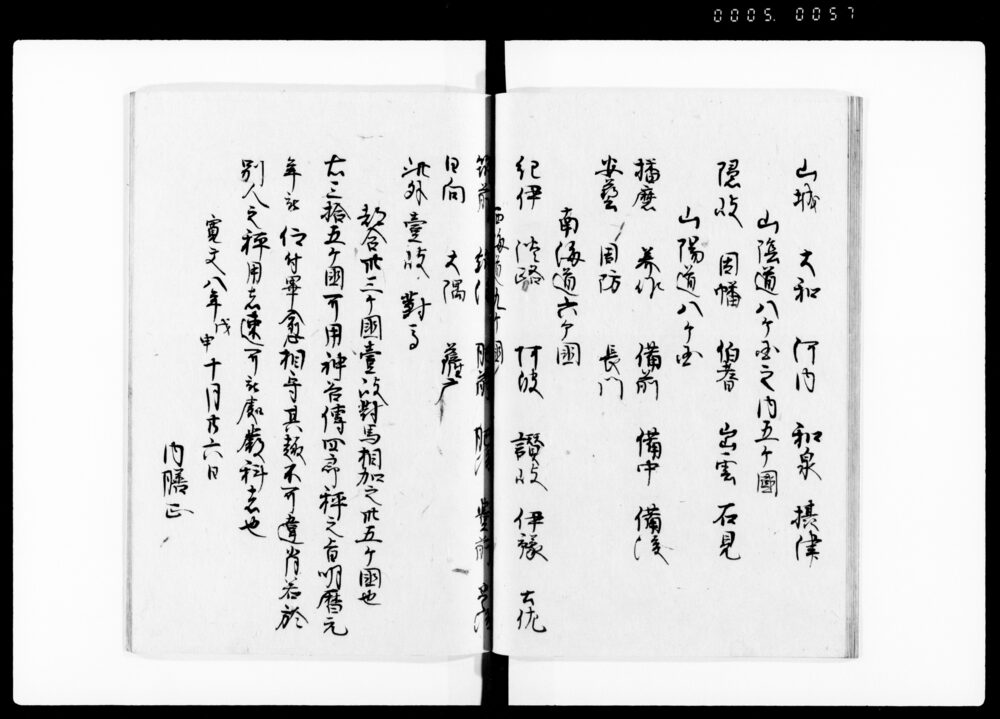 0005. 0057
山城 大和 河内 和泉 摂津
山陰道八ケ国之内五ケ國
隠岐 因幡 伯耆 出雲 石見
山陽道八ケ国
播磨 美作 備前 備中 備後
安藝 周防 長門
南海道六ケ國
紀伊 淡路 阿波 讃岐 伊豫 土佐
西海道九ケ國
筑前 筑後 肥前 肥後 豊前 豊後
日向 大隅 薩摩
此外壹岐 對馬
都合卅三ケ國壹岐對馬相加之卅五ケ國也
右三拾五ケ國可用神谷傳四郎秤之旨明暦元
年被 仰付畢愈相守其趣不可違背若於
別人之秤用者速可被處嚴科者也
寛文八年戊申十月廿六日
内膳正